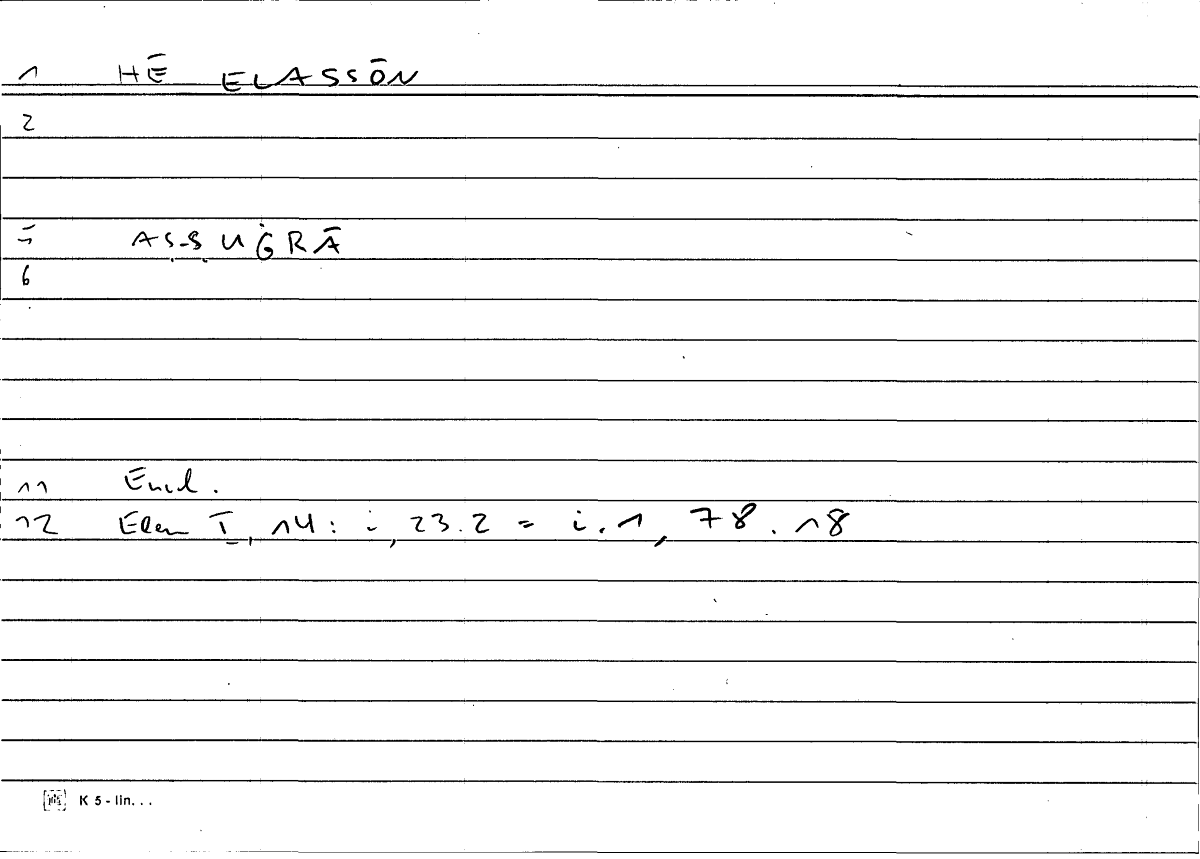 1 HĒ ELASSŌN
2
5 AṢ-ṢUĠRĀ
6
11 Eucl.
12 Elem I, 14: i, 23.2 = i.1, 78.18
K 5 - lin...